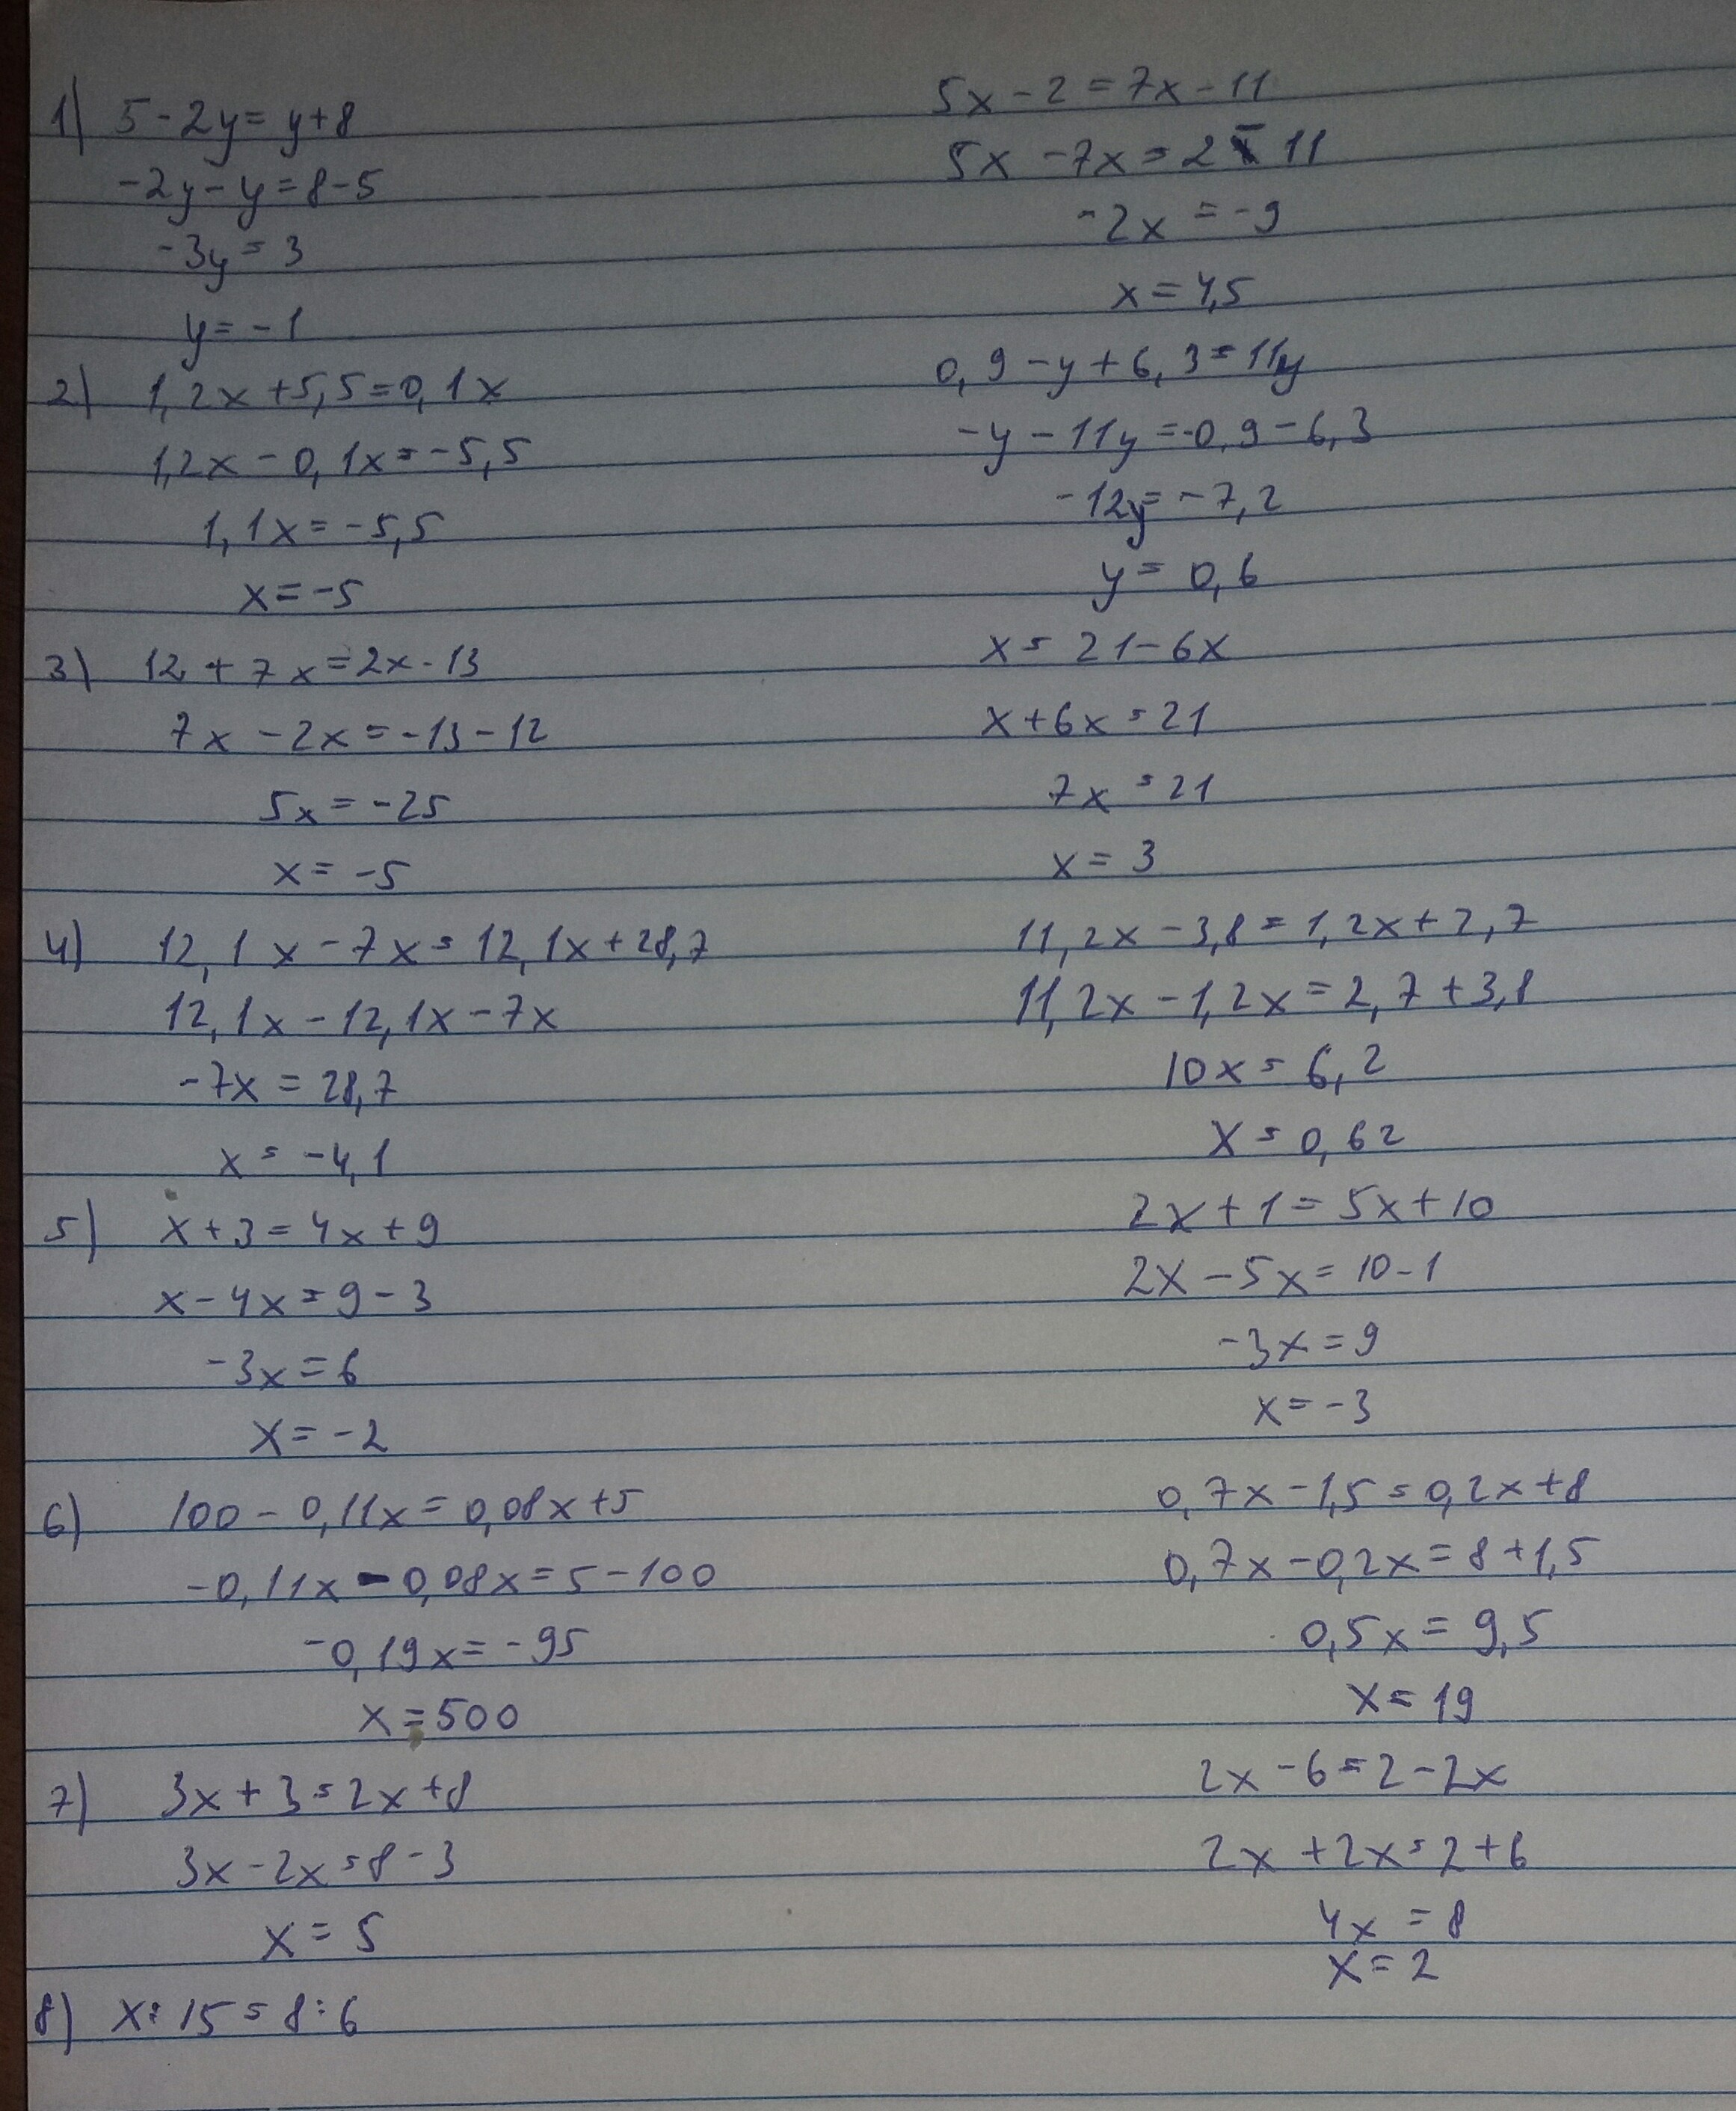 1) 5-2y=y+8
-2y-y=8-5
-3y=3
y=-1
5x-2=7x-11
5x-7x=2-11
-2x=-9
x=4,5
2) 1,2x+5,5=0,1x
1,2x-0,1x=-5,5
1,1x=-5,5
x=-5
0,9-y+6,3=11y
-y-11y=-0,9-6,3
-12y=-7,2
y=0,6
3) 12+7x=2x-13
7x-2x=-13-12
5x=-25
x=-5
x=21-6x
x+6x=21
7x=21
x=3
4) 12,1x-7x=12,1x+28,7
12,1x-12,1x-7x
-7x=28,7
x=-4,1
11,2x-3,8=1,2x+2,7
11,2x-1,2x=2,7+3,8
10x=6,2
x=0,62
5) x+3=4x+9
x-4x=9-3
-3x=6
x=-2
2x+1=5x+10
2x-5x=10-1
-3x=9
x=-3
6) 100-0,11x=0,08x+5
-0,11x-0,08x=5-100
-0,19x=-95
x=500
0,7x-1,5=0,2x+8
0,7x-0,2x=8+1,5
0,5x=9,5
x=19
7) 3x+3=2x+8
3x-2x=8-3
x=5
2x-6=2-2x
2x+2x=2+6
4x=8
x=2
8) x:15=8:6